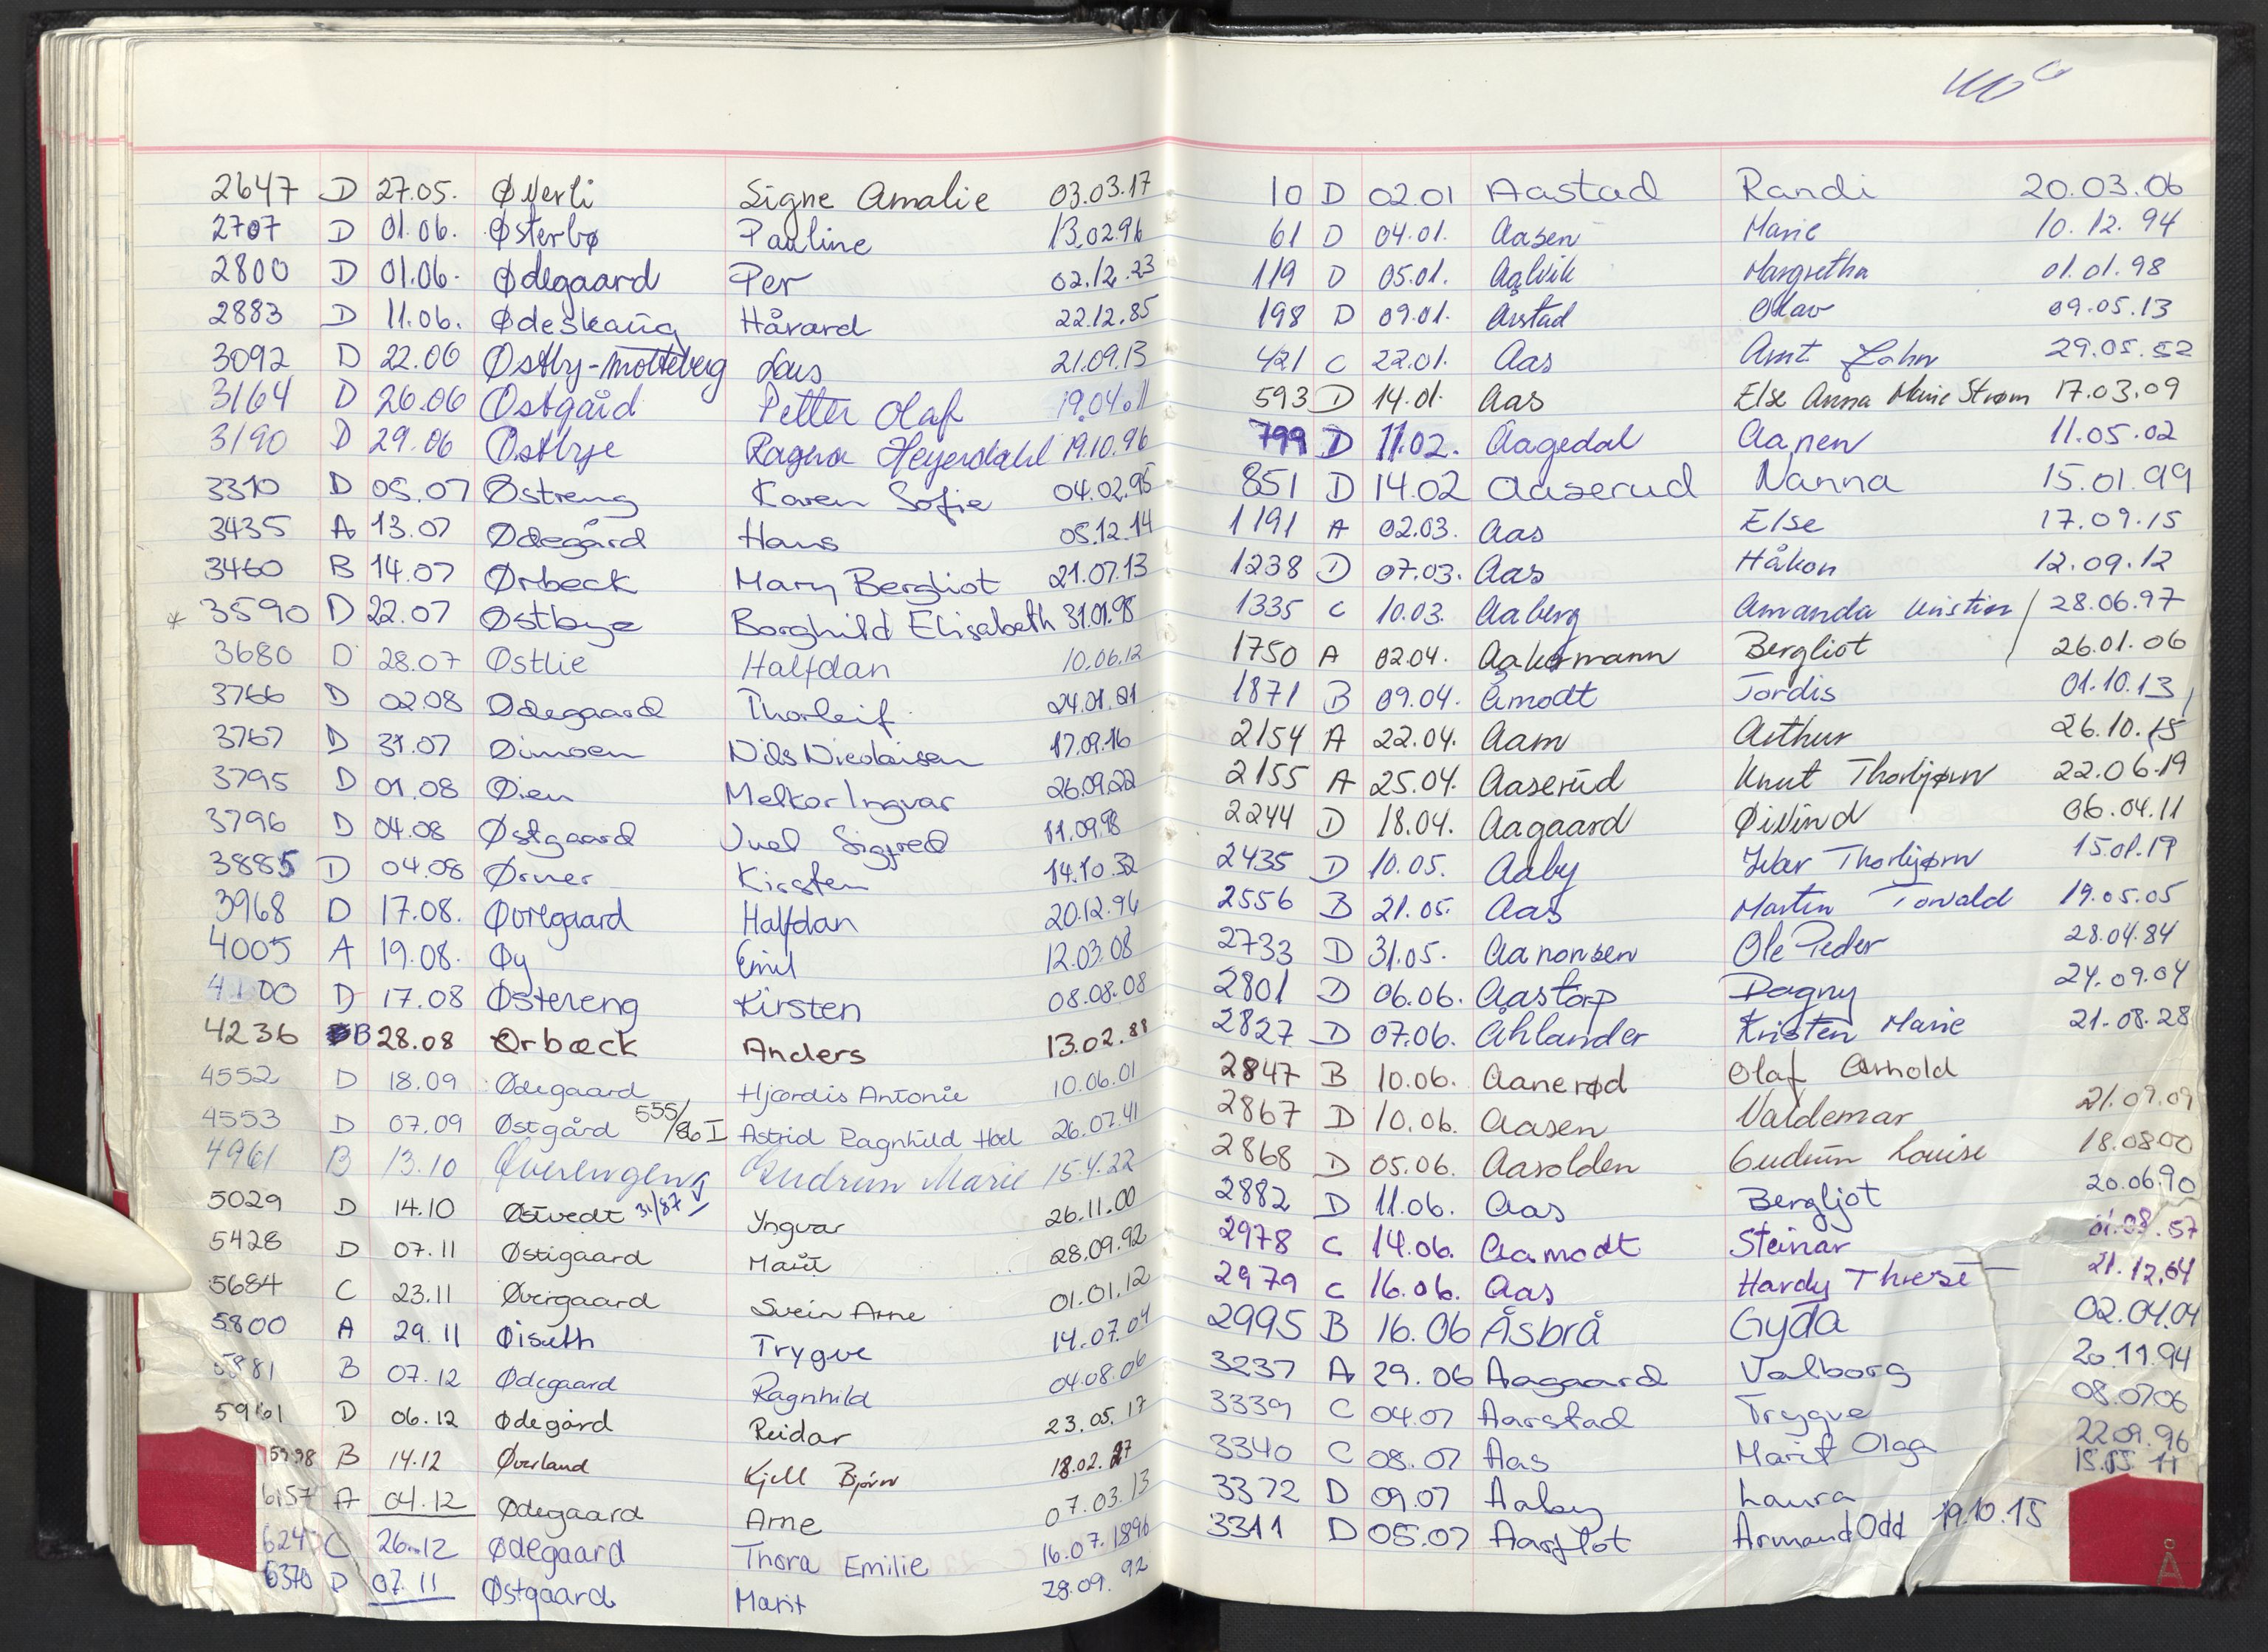 2647 D 27.05. Øverli Signe Amalie 03.03.17
2707 D 01.06. Østerbø Pauline 13.02.96
2800 D 01.06. Ødegaard Per 02.12.23
2883 D 11.06. Ødeskaug Håvard 22.12.85
3092 D 22.06 Østby-Motteberg Lars 21.09.13
3164 D 26.06 Østgård Petter Olaf 19.04.11
3190 D 29.06 Østbye Ragna Heyerdahl 19.10.96
3310 D 05.07 Østreng Karen Sofie 04.02.95
3435 A 13.07 Ødegård Hans 05.12.14
3460 B 14.07 Ørbeck Mary Bergliot 21.07.13
* 3590 D 22.07 Østbye Borghild Elisabeth 31.01.98
3680 D 28.07 Østlie Halfdan 10.06.12
3766 D 02.08 Ødegaard Thorleif 24.01.21
3767 D 31.07 Øimoen Nils Nicolaisen 17.09.16
3795 D 01.08 Øien Melkor Ingvar 26.09.22
3796 D 04.08 Østgaard Juel Sigfred 11.09.98
3885 D 04.08 Ørner Kirsten 14.10.32
3968 D 17.08. Øvregaard Halfdan 20.12.96
4005 A 19.08. Øy Emil 12.03.08
4100 D 17.08 Østereng Kirsten 08.08.08
4236 B 28.08 Ørbæck Anders 13.02.88
4552 D 18.09 Ødegaard Hjørdis Antonie 10.06.01
4553 D 07.09 Østgård 555/86 I Astrid Ragnhild Hoel 26.07.41
4961 B 13.10 Øverengeng Gudrun Marie 15.4.22
5029 D 14.10 Østvedt 31/87 Yngvar 26.11.00
5428 D 07.11 Østigaard Marit 28.09.92
5684 C 23.11 Øvergaard Svein Arne 01.01.12
5800 A 29.11 Øiseth Trygve 14.07.04
5881 B 07.12 Ødegaard Ragnhild 04.08.06
5961 D 06.12 Ødegård Reidar 23.05.17
5998 B 14.12 Øverland Kjell Bjørn 18.02.27
6157 A 04.12 Ødegaard Arne 07.03.13
624 C 26.12 Ødegaard Thora Emilie 16.07.1896
6370 D 07.11 Østgaard Marit 28.09.92
10 D 02.01 Aastad Randi 20.03.06
61 D 04.01. Aasen Marie 10.12.94
119 D 05.01. Aalvik Margretha 01.01.98
198 D 09.01. Arstad Olav 09.05.13
421 C 22.01. Aas Arnt John 29.05.52
593 D 14.01. Aas Else Anna Marie Strøm 17.03.09
799 D 11.02. Aagedal Aanen 11.05.02
851 D 14.02 Aaserud Nanna 15.01.99
1191 A 02.03. Aas Else 17.09.15
1238 D 07.03. Aas Håkon 12.09.12
1335 C 10.03. Aaberg Amanda Kristine 28.06.97
1750 A 02.04. Aakermann Bergliot 26.01.06
1871 B 09.04. Åmodt Tordis 01.10.13
2154 A 22.04. Aam Arthur 26.10.15
2155 A 25.04. Aaserud Knut Thorbjørn 22.06.19
2244 D 18.04. Aagaard Øivind 06.04.11
2435 D 10.05. Aaby Ivar Thorbjørn 15.01.19
2556 B 21.05. Aas Martin Torvald 19.05.05
2733 D 31.05. Aanonsen Ole Peder 28.04.84
2801 D 06.06. Aastorp Dagny 24.09.04
2827 D 07.06. Åhlander Kristen Marie 21.08.28
2847 B 10.06. Aanerød Olaf Arnhold
2867 D 10.06. Aasen Valdemar 21.09.09
2868 D 05.06. Aasolden Gudrun Louise 18.08.00
2882 D 11.06. Aas Bergljot 20.06.90
2978 C 14.06. Aamodt Steinar 01.08.57
2979 C 16.06. Aas Hardy Therese 21.12.04
2995 B 16.06 Åsbrå Gyda 02.04.04
3237 A 29.06 Aagaard Valborg 20.11.94
3339 C 04.07 Aarstad Trygve 08.07.06
3340 C 08.07 Aas Marit Olga 22.09.96
3372 D 09.07 Aaby Laura 15.05.11
3311 D 05.07 Aarflot Armand Odd 19.10.15
Å